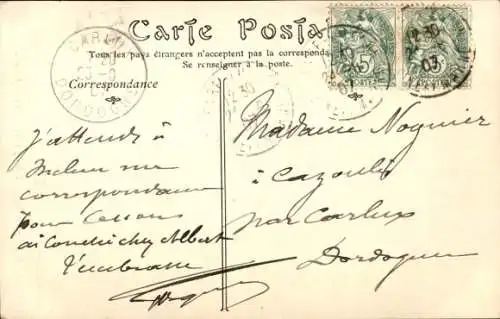 Carte Postale
Tous les pays étrangers n'acceptent pas la correspondance
Se renseigner à la poste.
Correspondance
CARLUX
DORDOGNE
5
POSTES
03
J'attends à
Melun une
correspondance
pour
ai couché chez Albert
t'embrasse
Madame Noguier
à Cazoulès
par Carlux
Dordogne